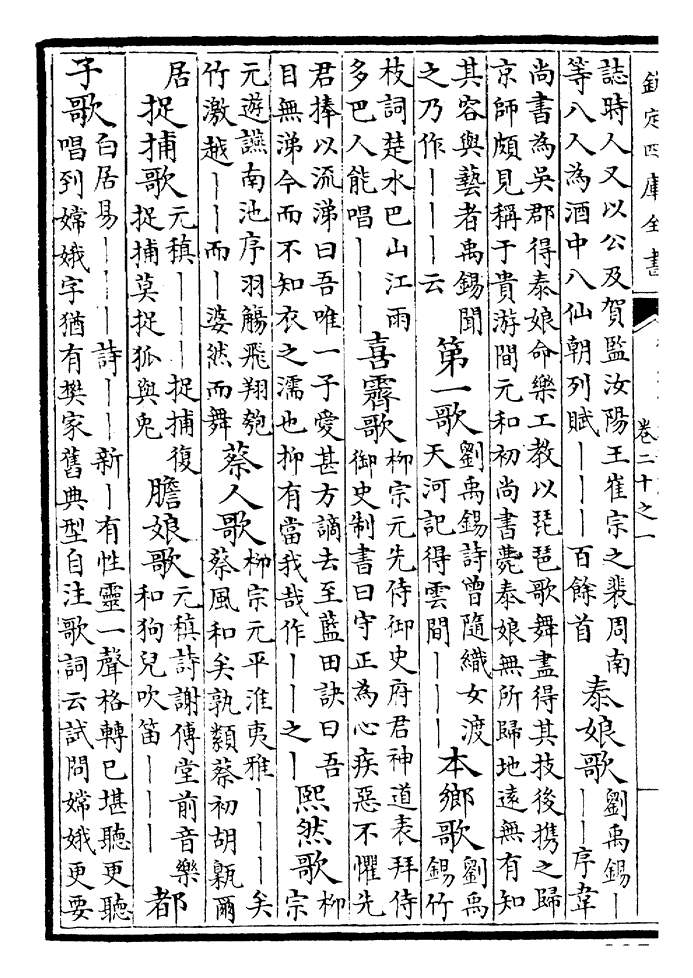 欽定四庫全書
卷二十之一
誌時人又以公及賀監汝陽王崔宗之裴周南
等八人為酒中八仙朝列賦｜｜｜百餘首
泰娘歌
劉禹錫｜
｜｜序韋
尚書為吳郡得泰娘命樂工教以琵琶歌舞盡得其技後携之歸
京師頗見稱于貴游間元和初尚書薨泰娘無所歸地遠無有知
其容與藝者禹錫聞
之乃作｜｜｜云
第一歌
劉禹錫詩曾隨織女渡
天河記得雲間｜｜｜
本鄉歌
劉禹
錫竹
枝詞楚水巴山江雨
多巴人能唱｜｜｜
喜霽歌
柳宗元先侍御史府君神道表拜侍
御史制書曰守正為心疾惡不懼先
君捧以流涕曰吾唯一子愛甚方謫去至藍田訣曰吾
目無涕今而不知衣之濡也抑有當我哉作｜｜之｜
熙然歌
柳
宗
元遊讌南池序羽觴飛翔匏
竹激越｜｜而｜婆然而舞
蔡人歌
柳宗元平淮夷雅｜｜｜矣
蔡風和矣孰纇蔡初胡甈爾
居
捉捕歌
元稹｜｜｜捉捕復
捉捕莫捉狐與兔
膽娘歌
元稹詩謝傅堂前音樂
和狗兒吹笛｜｜｜
都
子歌
白居易｜｜｜｜詩｜｜新｜有性靈一聲格轉已堪聽更聽
唱到嫦娥字猶有樊家舊典型自注歌詞云試問嫦娥更要